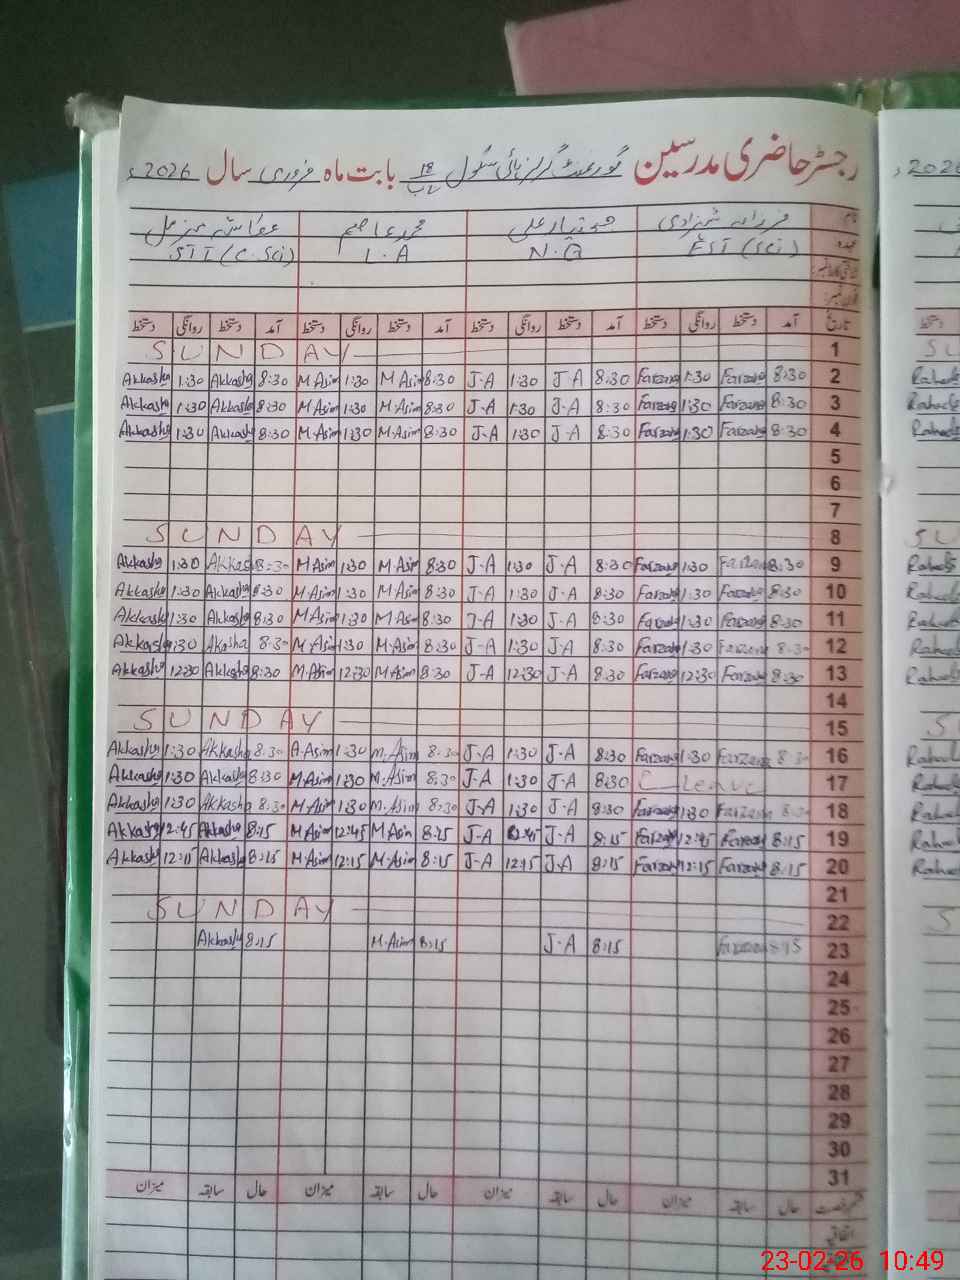 رجسٹر حاضری مدرسین گورنمنٹ گرلز ہائی سکول 18 بابت ماہ فروری سال 2026ء
نام فرزانہ شہزادی علی محمد عاصم عکاشہ مزمل
عہدہ EST (Sci) N.Q L.A STI (C.Sci)
تاریخ آمد دستخط روانگی دستخط آمد دستخط روانگی دستخط آمد دستخط روانگی دستخط آمد دستخط روانگی دستخط
SUNDAY 1
Akkasha 1:30 Akkasha 8:30 M.Asim 1:30 M.Asim 8:30 J-A 1:30 J-A 8:30 Farzana 1:30 Farzana 8:30 2
Akkasha 1:30 Akkasha 8:30 M.Asim 1:30 M.Asim 8:30 J-A 1:30 J-A 8:30 Farzana 1:30 Farzana 8:30 3
Akkasha 1:30 Akkasha 8:30 M.Asim 1:30 M.Asim 8:30 J-A 1:30 J-A 8:30 Farzana 1:30 Farzana 8:30 4
5
6
7
SUNDAY 8
Akkasha 1:30 Akkasha 8:30 M.Asim 1:30 M.Asim 8:30 J-A 1:30 J-A 8:30 Farzana 1:30 Farzana 8:30 9
Akkasha 1:30 Akkasha 8:30 M.Asim 1:30 M.Asim 8:30 J-A 1:30 J-A 8:30 Farzana 1:30 Farzana 8:30 10
Akkasha 1:30 Akkasha 8:30 M.Asim 1:30 M.Asim 8:30 J-A 1:30 J-A 8:30 Farzana 1:30 Farzana 8:30 11
Akkasha 1:30 Akasha 8:30 M.Asim 1:30 M.Asim 8:30 J-A 1:30 J-A 8:30 Farzana 1:30 Farzana 8:30 12
Akkasha 12:30 Akkasha 8:30 M.Asim 12:30 M.Asim 8:30 J-A 12:30 J-A 8:30 Farzana 12:30 Farzana 8:30 13
14
SUNDAY 15
Akkasha 1:30 Akkasha 8:30 A.Asim 1:30 M.Asim 8:30 J-A 1:30 J-A 8:30 Farzana 1:30 Farzana 8:30 16
Akkasha 1:30 Akkasha 8:30 M.Asim 1:30 M.Asim 8:30 J-A 1:30 J-A 8:30 C Leave 17
Akkasha 1:30 Akkasha 8:30 M.Asim 1:30 M.Asim 8:30 J-A 1:30 J-A 8:30 Farzana 1:30 Farzana 8:30 18
Akkasha 12:45 Akkasha 8:15 M.Asim 12:45 M.Asim 8:15 J-A 12:45 J-A 8:15 Farzana 12:45 Farzana 8:15 19
Akkasha 12:15 Akkasha 8:15 M.Asim 12:15 M.Asim 8:15 J-A 12:15 J-A 8:15 Farzana 12:15 Farzana 8:15 20
21
SUNDAY 22
Akkasha 8:15 M.Asim 8:15 J-A 8:15 Farzana 8:15 23
24
25
26
27
28
29
30
31
حال سابقہ میزان حال سابقہ میزان حال سابقہ میزان حال سابقہ میزان
اتفاقیہ
23-02-26 10:49